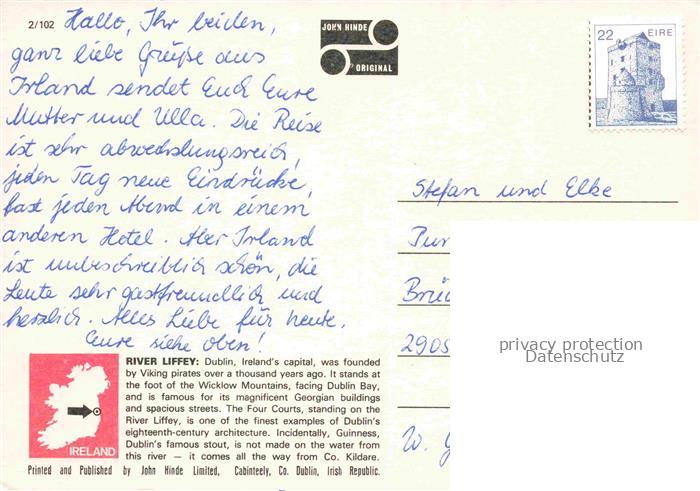 2/102
Hallo, Ihr beiden,
ganz liebe Grüße aus
Irland sendet Euch Eure
Mutter und Ulla. Die Reise
ist sehr abwechslungsreich,
jeden Tag neue Eindrücke,
fast jeden Abend in einem
anderen Hotel. Aber Irland
ist unbeschreiblich schön, die
Leute sehr gastfreundlich und
herzlich. Alles Liebe für heute.
Eure siehe oben!
JOHN HINDE
ORIGINAL
22 EIRE
Stefan und Elke
2905
privacy protection
Datenschutz
IRELAND
RIVER LIFFEY: Dublin, Ireland's capital, was founded
by Viking pirates over a thousand years ago. It stands at
the foot of the Wicklow Mountains, facing Dublin Bay,
and is famous for its magnificent Georgian buildings
and spacious streets. The Four Courts, standing on the
River Liffey, is one of the finest examples of Dublin's
eighteenth-century architecture. Incidentally, Guinness,
Dublin's famous stout, is not made on the water from
this river — it comes all the way from Co. Kildare.
Printed and Published by John Hinde Limited, Cabinteely, Co. Dublin, Irish Republic.